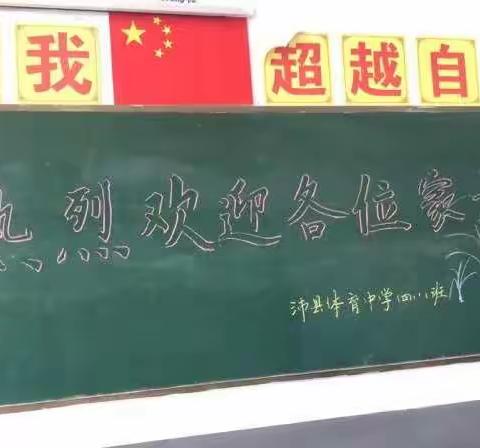 我 超越自
热烈欢迎各位家
沛县体育中学四八班